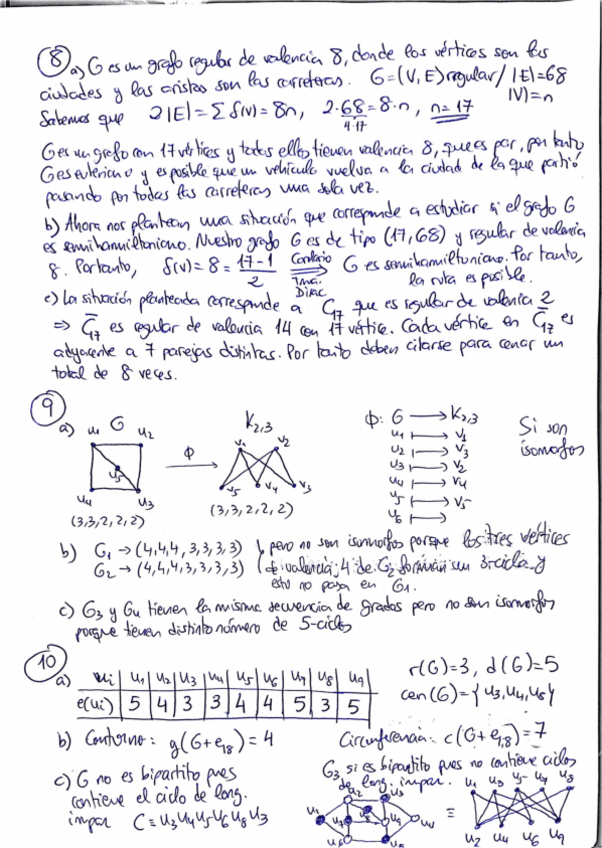 8 a) G es un grafo regular de valencia 8, donde los vértices son las
ciudades y las aristas son las carreteras. G=(V,E) regular / |E|=68
|V|=n
Sabemos que 2|E| = Σ δ(v) = 8n, 2·68 = 8·n, n=17
4·17
G es un grafo con 17 vértices y todos ellos tienen valencia 8, que es par, por tanto
G es euleriano y es posible que un vehículo vuelva a la ciudad de la que partió
pasando por todas las carreteras una sola vez.
b) Ahora nos plantean una situación que corresponde a estudiar si el grafo G
es semihamiltoniano. Nuestro grafo G es de tipo (17,68) y regular de valencia
8. Por tanto, δ(v) = 8 = (17-1)/2 ⟹ G es semihamiltoniano. Por tanto,
Corolario
Tma. DIRAC
la ruta es posible.
c) La situación planteada corresponde a C17 que es regular de valencia 2
⇒ C̄17 es regular de valencia 14 con 17 vértice. Cada vértice en C̄17 es
adyacente a 7 parejas distintas. Por tanto deben citarse para cenar un
total de 8 veces.
9
a) G K2,3 Φ: G → K2,3 Si son
isomorfos
u1 u2 v1 v2 u1 ↦ v1
Φ u2 ↦ v3
u5 u3 ↦ v2
u4 u3 v5 v4 v3 u4 ↦ v4
(3,3,2,2,2) (3,3,2,2,2) u5 ↦ v5
u6 ↦
b) G1 → (4,4,4,3,3,3,3) pero no son isomorfos porque los tres vértices
G2 → (4,4,4,3,3,3,3) de valencia 4 de G2 forman un 3-ciclo y
esto no pasa en G1.
c) G3 y G4 tienen la misma secuencia de grados pero no son isomorfos
porque tienen distinto número de 5-ciclos
10
a) ui | u1 | u2 | u3 | u4 | u5 | u6 | u7 | u8 | u9 r(G)=3, d(G)=5
e(ui) | 5 | 4 | 3 | 3 | 4 | 4 | 5 | 3 | 5 cen(G)={u3,u4,u8}
b) Contorno: g(G+e1,8)=4 Circunferencia: c(G+e1,8)=7
c) G no es bipartito pues
contiene el ciclo de long.
impar C≡u3u4u5u6u8u3
G3 si es bipartito pues no contiene ciclos
de long. impar.